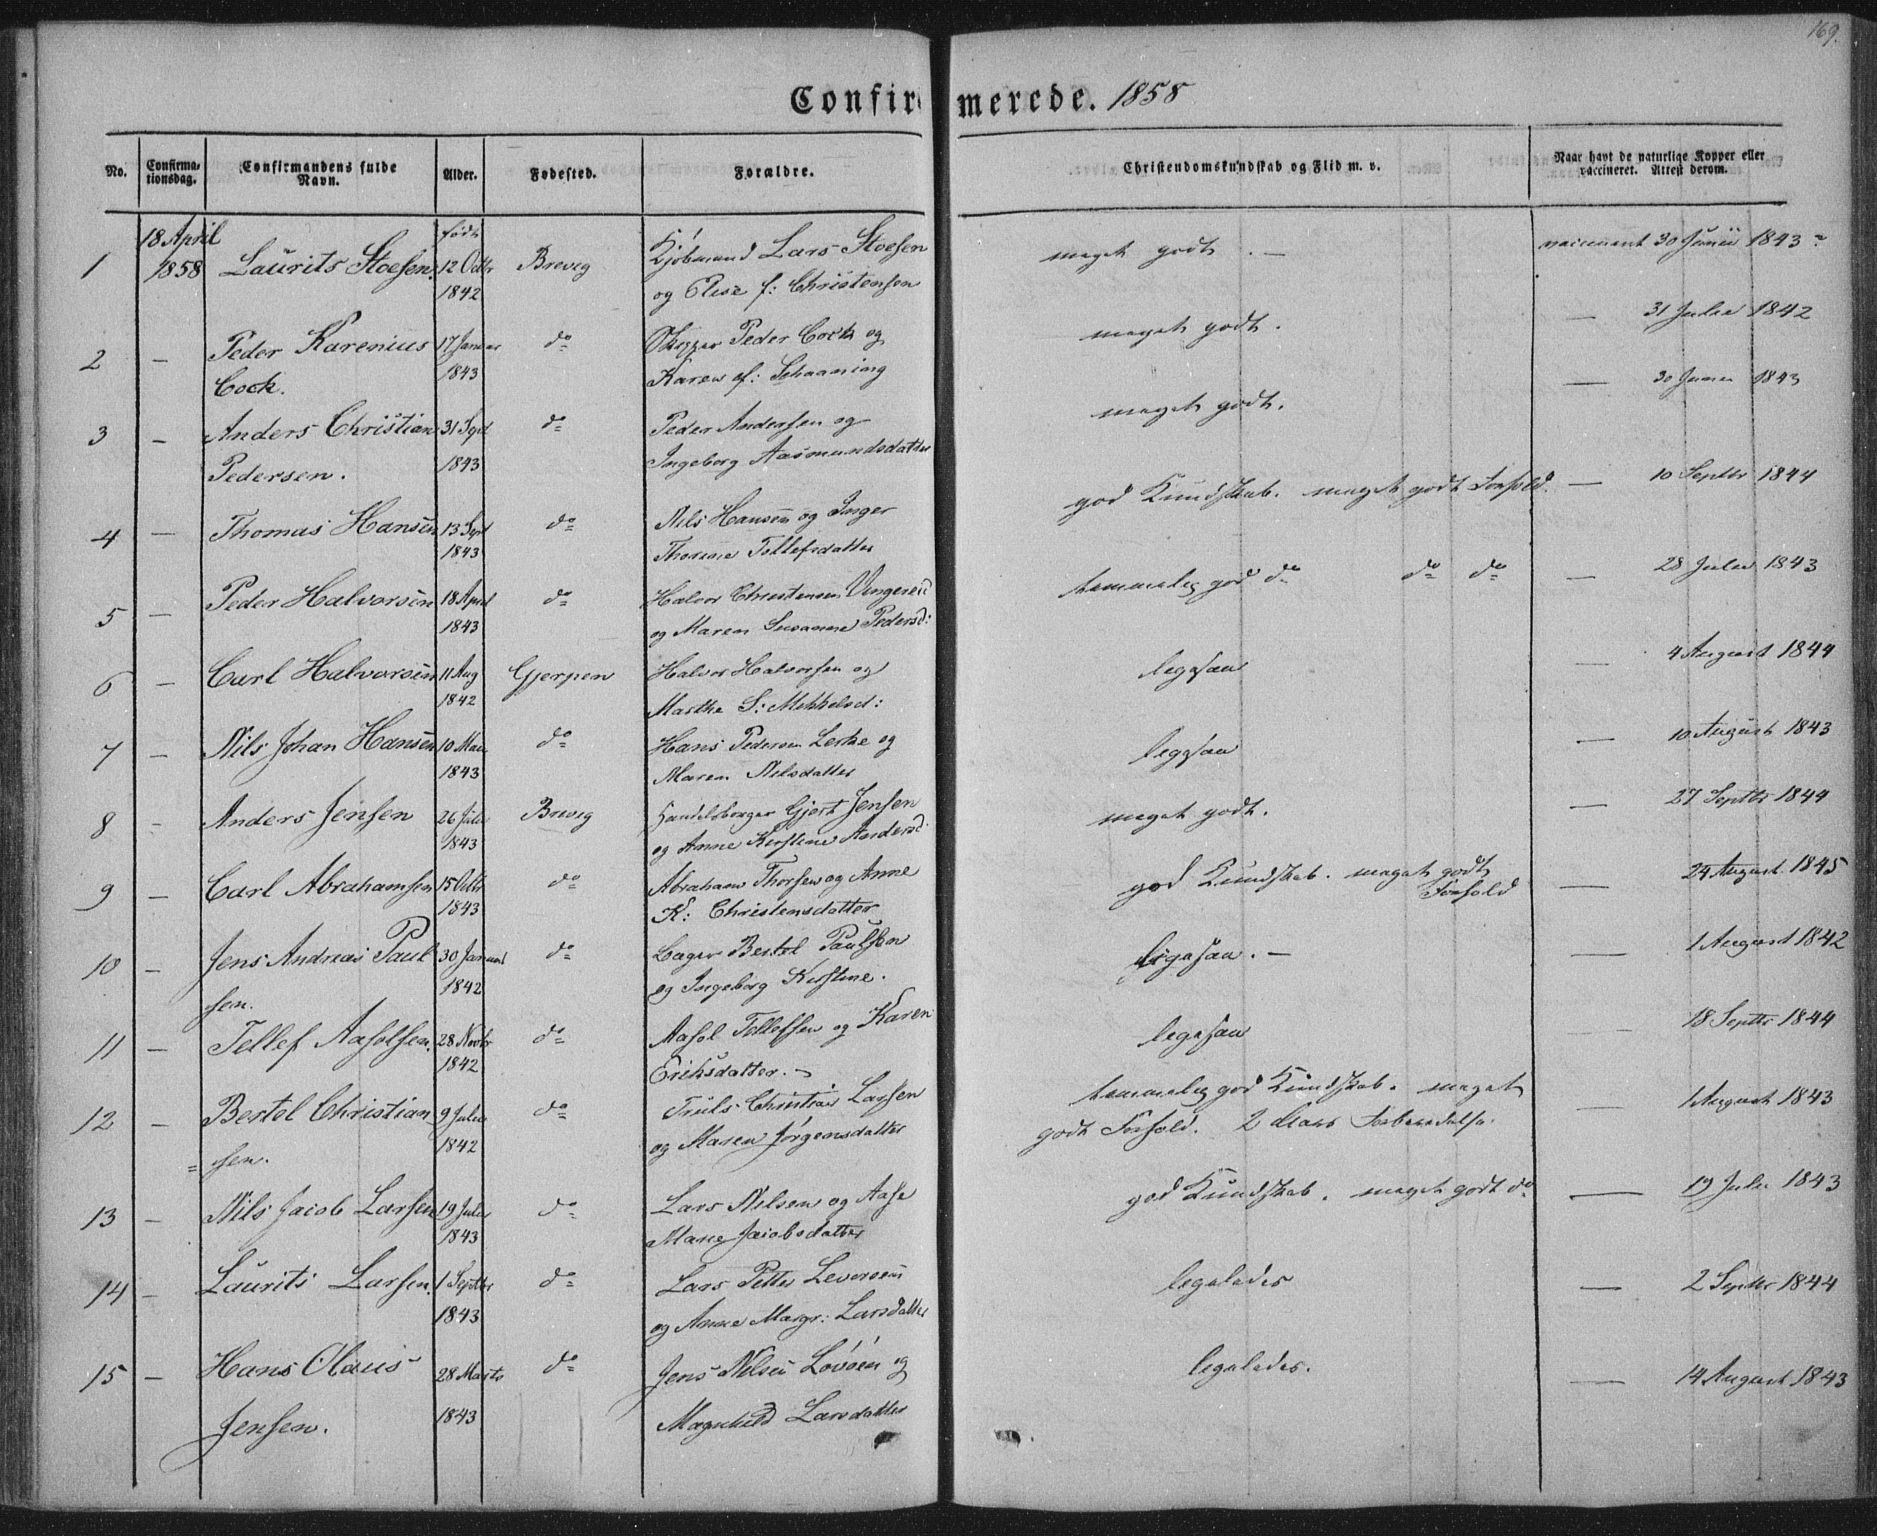 169.
Confirmerede. 1858
No. Confirma-tionsdag. Confirmandens fulde Navn. Alder. Fødested. Forældre. Christendomskundskab og Flid m. v. Naar havt de naturlige Kopper eller vaccineret. Attest derom.
18 April født Kjöbmand Lars Stoesen
1 1858 Laurits Stoesen 12 Octbr Brevig meget godt. — vaccineret 30 Junii 1843
1842 og Elise f: Christensen
2 — Peder Karenius 17 Januar do Skipper Peder Cock og meget godt. — 31 Julii 1842
Cock. 1843 Karen f: Schaaning
3 — Anders Christian 31 Sept do Peder Andersen og meget godt. — 30 Junii 1843
Pedersen. 1843 Ingeborg Aasmundsdatter
4 — Thomas Hansen 13 Sept do Nils Hansen og Inger god Kundskab. meget godt Forhold. — 10 Septbr 1844
1843 Thorine Tollefsdatter
5 — Peder Halvorsen 18 April do Halvor Christensen temmelig god do do do — 28 Julii 1843
1843 og Maren Susanne Pedersd:
6 — Carl Halvorsen 11 Aug Gjerpen Halvor Halvorsen og ligesaa — 4 August 1844
1842 Marthe S: Mikkelsd:
7 — Nils Johan Hansen 10 Mai do Hans Pedersen Lerke og ligesaa — 10 August 1843
1843 Maren Nilsdatter
8 — Anders Jensen 26 Julii Brevig Handelsborger Gjert Jensen meget godt. — 27 Septbr 1844
1843 og Anne Kirstine Andersd:
9 — Carl Abrahamsen 15 Octbr do Abraham Thorsen og Anne god Kundskab. meget godt Forhold — 24 August 1845
1843 K: Christensdatter
10 — Jens Andreas Paul 30 Januar do Bager Bertel Paulsen ligesaa. — — 1 August 1842
sen. 1842 og Ingeborg Kirstine.
11 — Tellef Aasolsen. 28 Novbr do Aasol Tellefsen og Karen ligesaa — 18 Septbr 1844
1842 Eriksdatter. —
12 — Bertel Christian 9 Julii do Truls Christian Larsen temmelig god Kundskab. meget — 1 August 1843
= sen. 1842 og Maren Jörgensdatter godt Forhold. 2 Aars Forberedelse.
13 — Nils Jacob Larsen 19 Julii do Lars Nilsen og Aase god Kundskab. meget godt do — 19 Julii 1843
1843 Marie Jacobsdatter
14 — Laurits Larsen. 1 Septbr do Lars Petter Leversen ligeledes — 2 Septbr 1844
1843 og Anne Margr: Larsdatter
15 — Hans Olaus 28 Marts do Jens Nilsen Lovöen og ligeledes. — 14 August 1843
Jensen. 1843 Magnhild Larsdatter